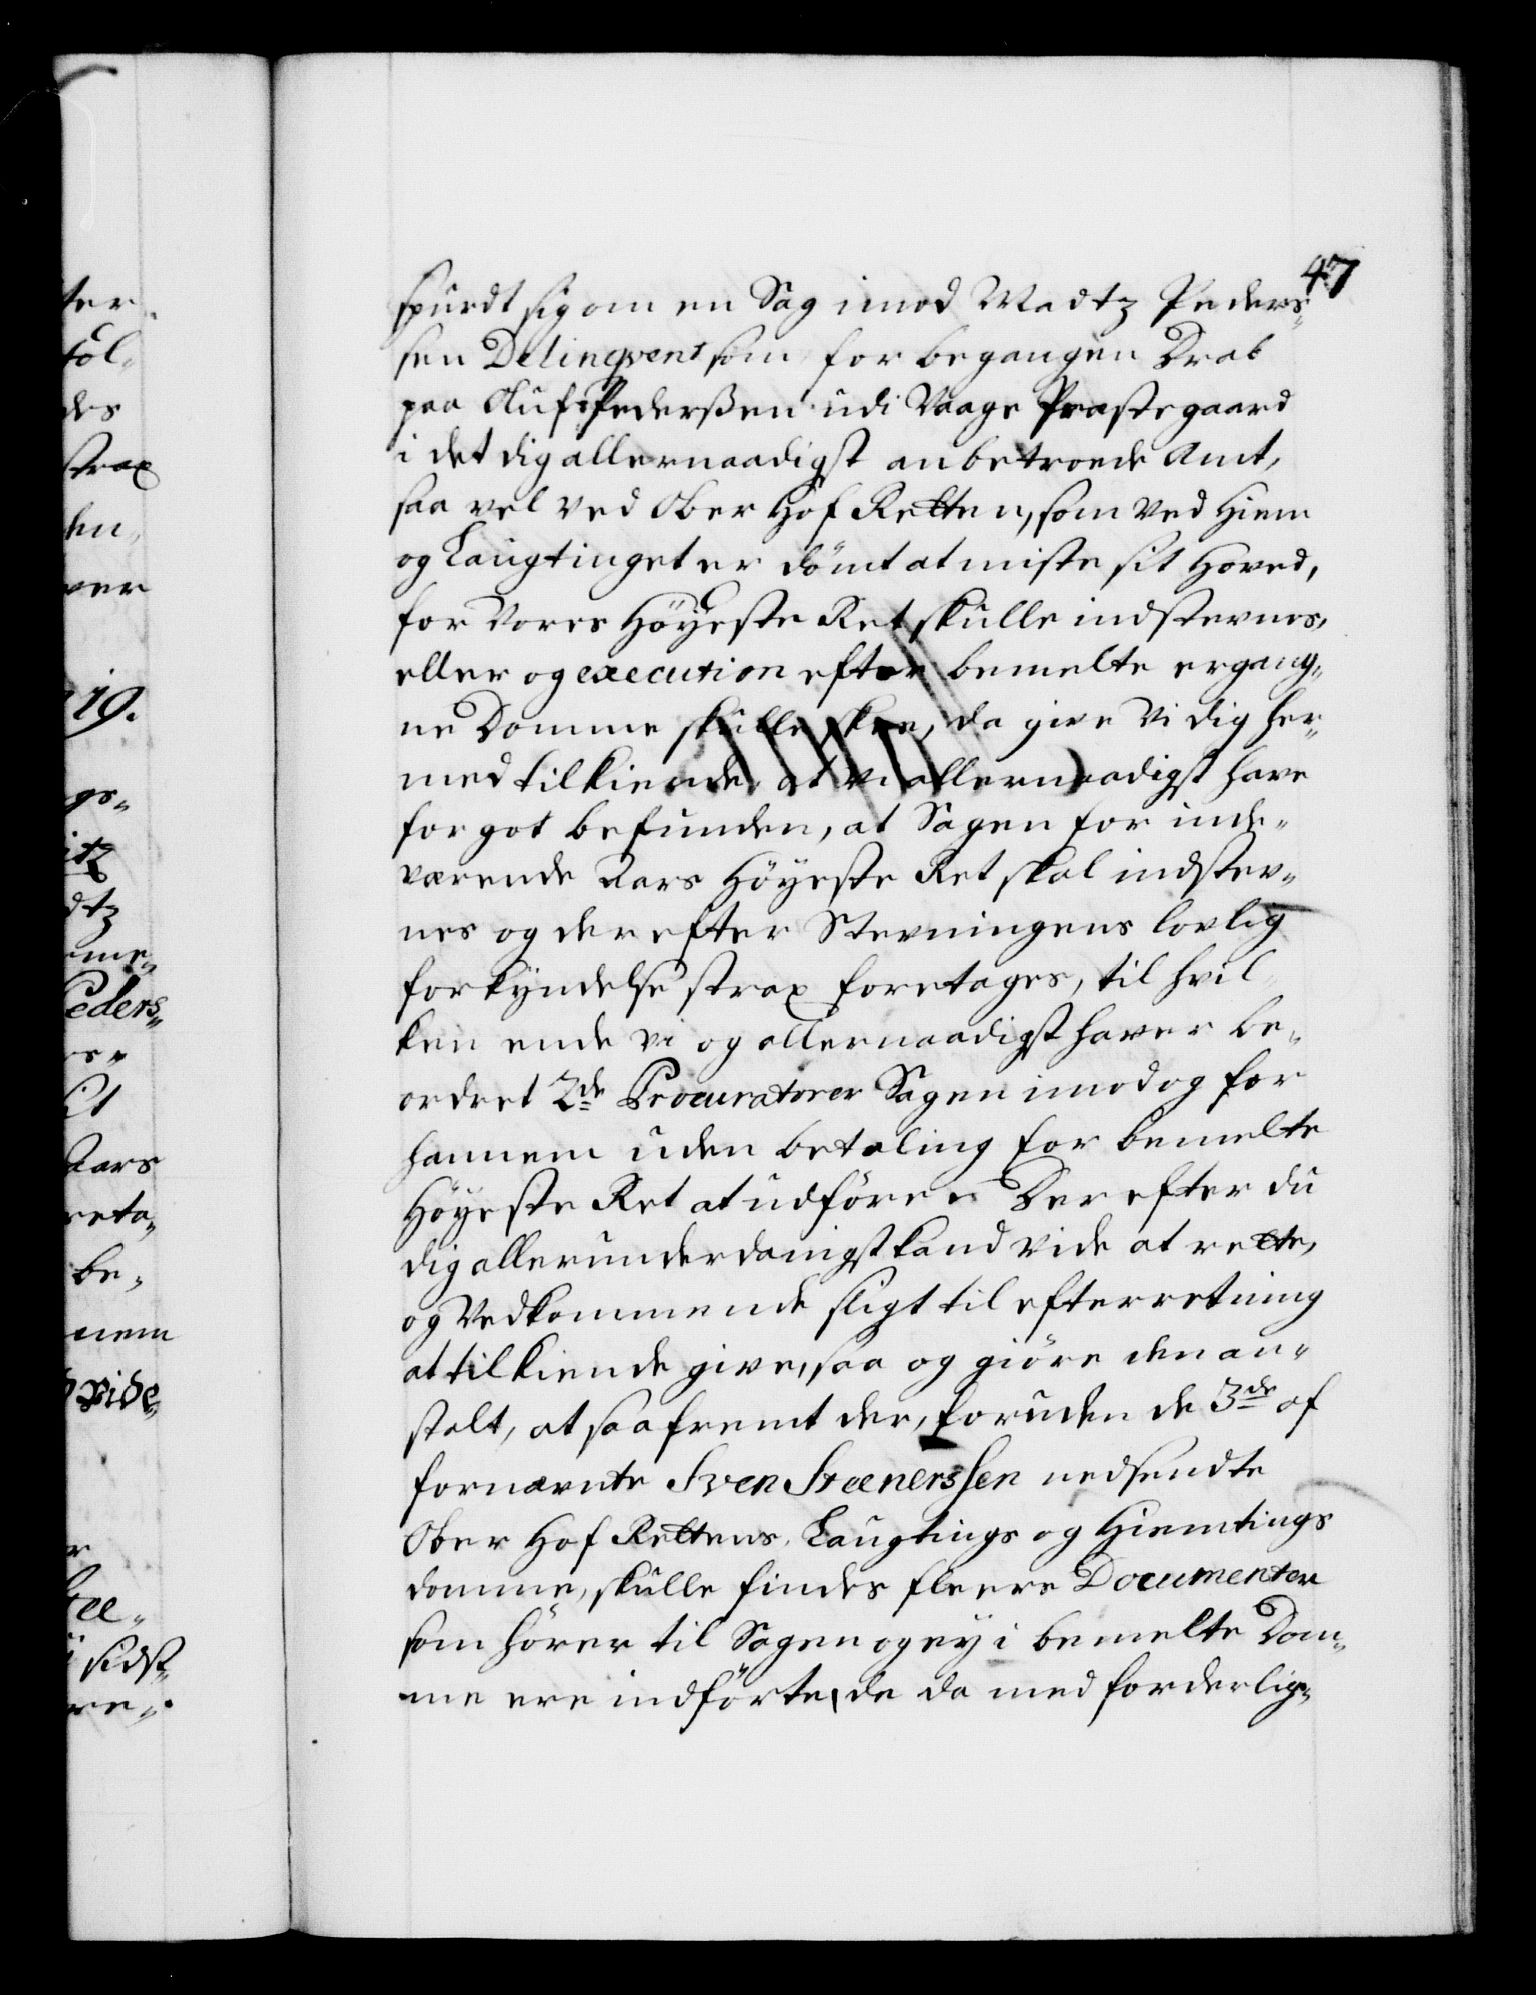 47
spurdt sig om en Sag imod Madtz Peders-
sen Delinqvent som for begangen Drab
paa Oluf Pederssen udi Vaage Præstegaard
i det dig allernaadigst anbetroede Amt,
saa vel ved Ober Hof Retten, som ved Hiem
og Laugtinget er dömt at miste sit Hoved,
for Vores Höyeste Ret skulle indstevnes,
eller og execution efter bemelte ergang-
ne Domme skulle skee, da give Vi dig her-
med tilkiende, at vi allernaadigst have
for got befunden, at Sagen for inde-
værende Aars Höyeste Ret skal indstev-
nes og der efter Stevningens lovlig
forkyndelse strax foretages, til hvil-
ken ende vi og allernaadigst haver be-
ordret 2de Procuratorer Sagen imod og for
hannem uden betaling for bemelte
Höyeste Ret at udföre. Der efter du
dig allerunderdanigst kand vide at rette,
og Vedkommende sligt til efterretning
at tilkiende give, saa og giöre den an-
stalt, at saafremt der, foruden de 3de af
fornævnte Sven Stenerssen nedsendte
Ober Hof Rettens, Laugtings og Hiemtings
domme, skulle findes fleere Documenter
som hörer til Sagen og ey i bemelte Dom-
me ere indförte, de da med forderlig-
ter
föl-
des
strax
ver
19.
gs-
itz
dtz
Peders-
Aars
reta-
be-
nem
vide-
sidst-